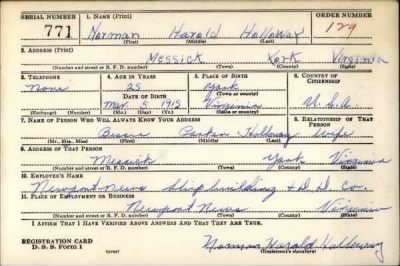 SERIAL NUMBER 1. NAME (Print) ORDER NUMBER
771 Norman Harold Holloway 129
(First) (Middle) (Last)
2. ADDRESS (Print)
Messick York Virginia
(Number and street or R. F. D. number) (Town) (County) (State)
3. TELEPHONE 4. AGE IN YEARS 5. PLACE OF BIRTH 6. COUNTRY OF CITIZENSHIP
None 25 York
DATE OF BIRTH (Town or county)
Mar. 5 1915 Virginia U.S.A.
(Exchange) (Number) (Mo.) (Day) (Yr.) (State or country)
7. NAME OF PERSON WHO WILL ALWAYS KNOW YOUR ADDRESS 8. RELATIONSHIP OF THAT PERSON
Holloway wife
(Mr., Mrs., Miss) (First) (Middle) (Last)
9. ADDRESS OF THAT PERSON
Messick York Virginia
(Number and street or R. F. D. number) (Town) (County) (State)
10. EMPLOYER'S NAME
Newport News Shipbuilding & D. D. Co.
11. PLACE OF EMPLOYMENT OR BUSINESS
Newport News Virginia
(Number and street or R. F. D. number) (Town) (County) (State)
I AFFIRM THAT I HAVE VERIFIED ABOVE ANSWERS AND THAT THEY ARE TRUE.
REGISTRATION CARD
D. S. S. Form 1 (over) Norman Harold Holloway
(Registrant's signature)